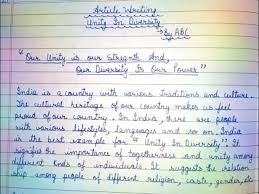 Article Writing
Unity In Diversity
→ By ABC
"Our Unity is our Strength And,
Our Diversity Is Our Power"
India is a country with various traditions and culture.
The cultural heritage of our country makes us feel
proud of our country. In India, there are people
with various lifestyles, languages and so on. India
is the best example for "Unity In Diversity". It
signifies the importance of togetherness and unity among
different kinds of individuals. It suggests the relation
ship among people of different religion, caste, gender, etc